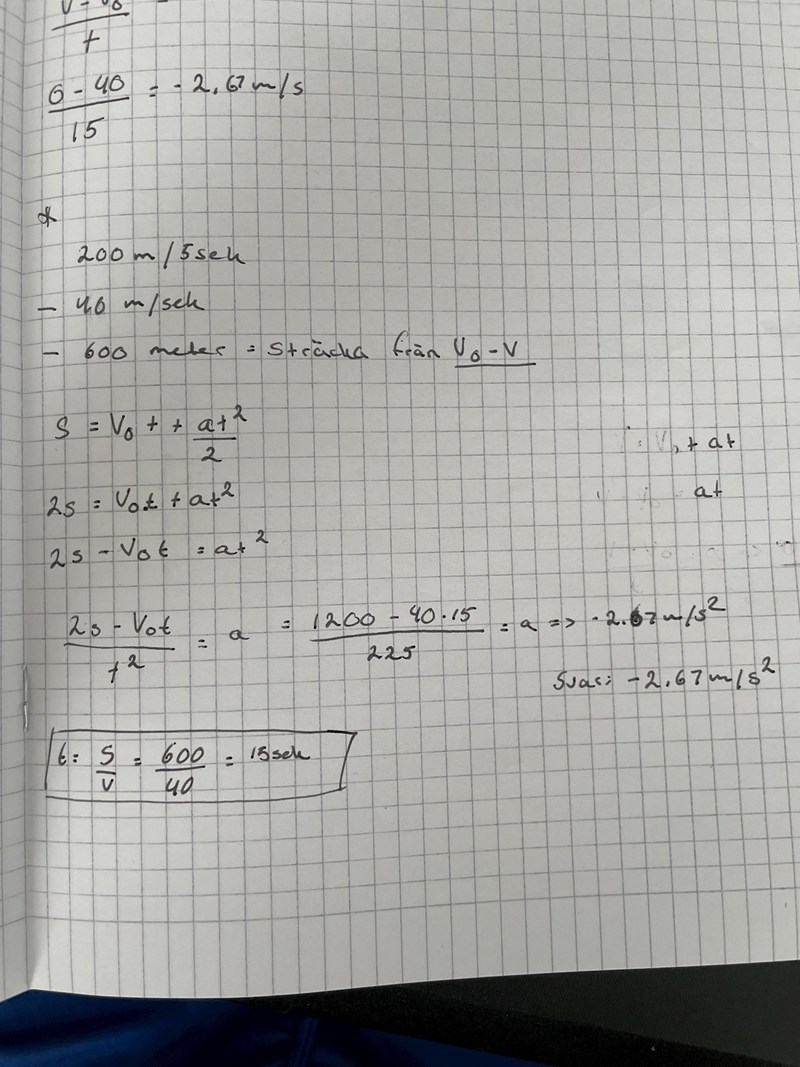 v - v₀
t
0 - 40 / 15 = - 2,67 m/s
*
200 m / 5 sek
- 40 m/sek
- 600 meter = Sträcka från V₀ - V
S = V₀ t + at² / 2
2s = V₀t + at²
2s - V₀t = at²
V₀ + at
at
2s - V₀t / t² = a = 1200 - 40·15 / 225 = a => -2.67 m/s²
Svar: -2.67 m/s²
t = S / V = 600 / 40 = 15 sek